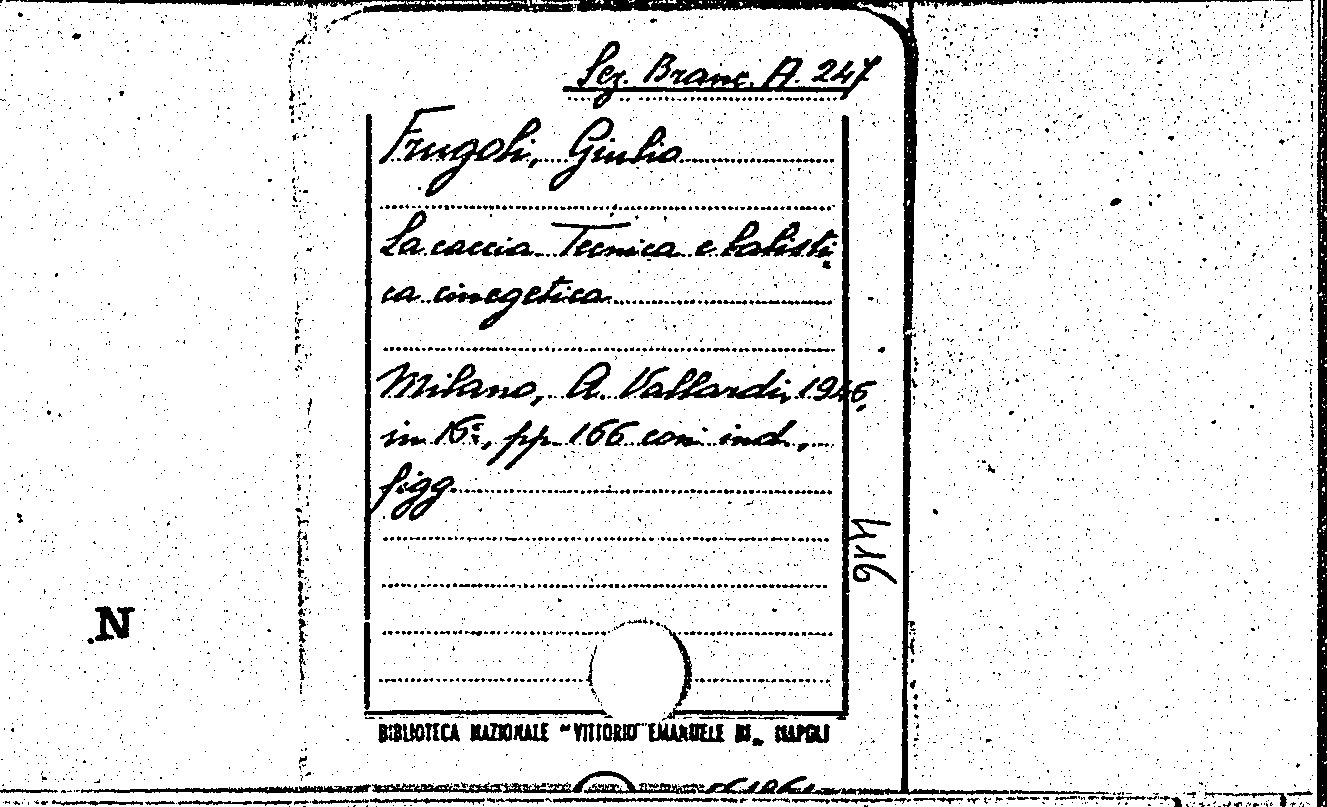 Sez. Branc. A. 247
Frugoli, Giulio
La caccia. Tecnica e balisti
ca cinegetica
Milano, A. Vallardi, 1946,
in 16°, pp. 166 con ind.,
figg.
N
BIBLIOTECA NAZIONALE "VITTORIO EMANUELE III" NAPOLI